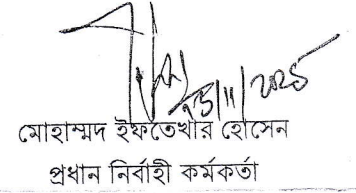 মোহাম্মদ ইফতেখার হোসেন
প্রধান নির্বাহী কর্মকর্তা